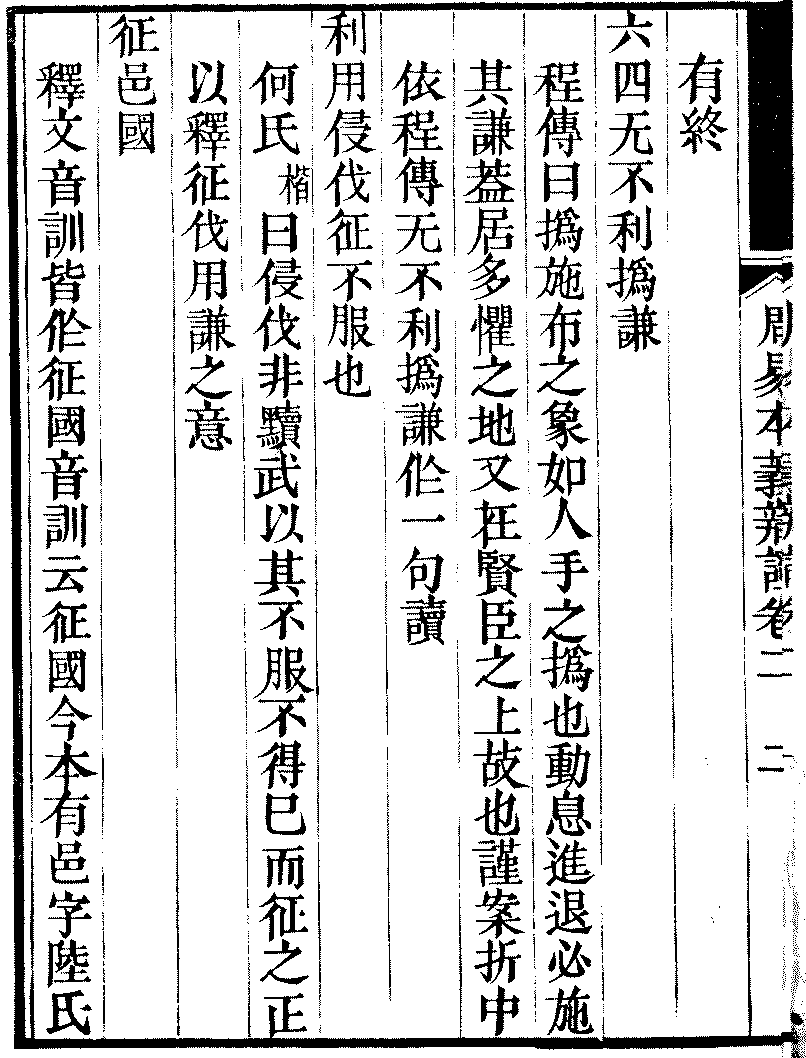 周易本義辨證卷二 二
有終
六四无不利撝謙
程傳曰撝施布之象如人手之撝也動息進退必施
其謙葢居多懼之地又在賢臣之上故也謹案折中
依程傳无不利撝謙作一句讀
利用侵伐征不服也
何氏楷曰侵伐非黷武以其不服不得已而征之正
以釋征伐用謙之意
征邑國
釋文音訓皆作征國音訓云征國今本有邑字陸氏